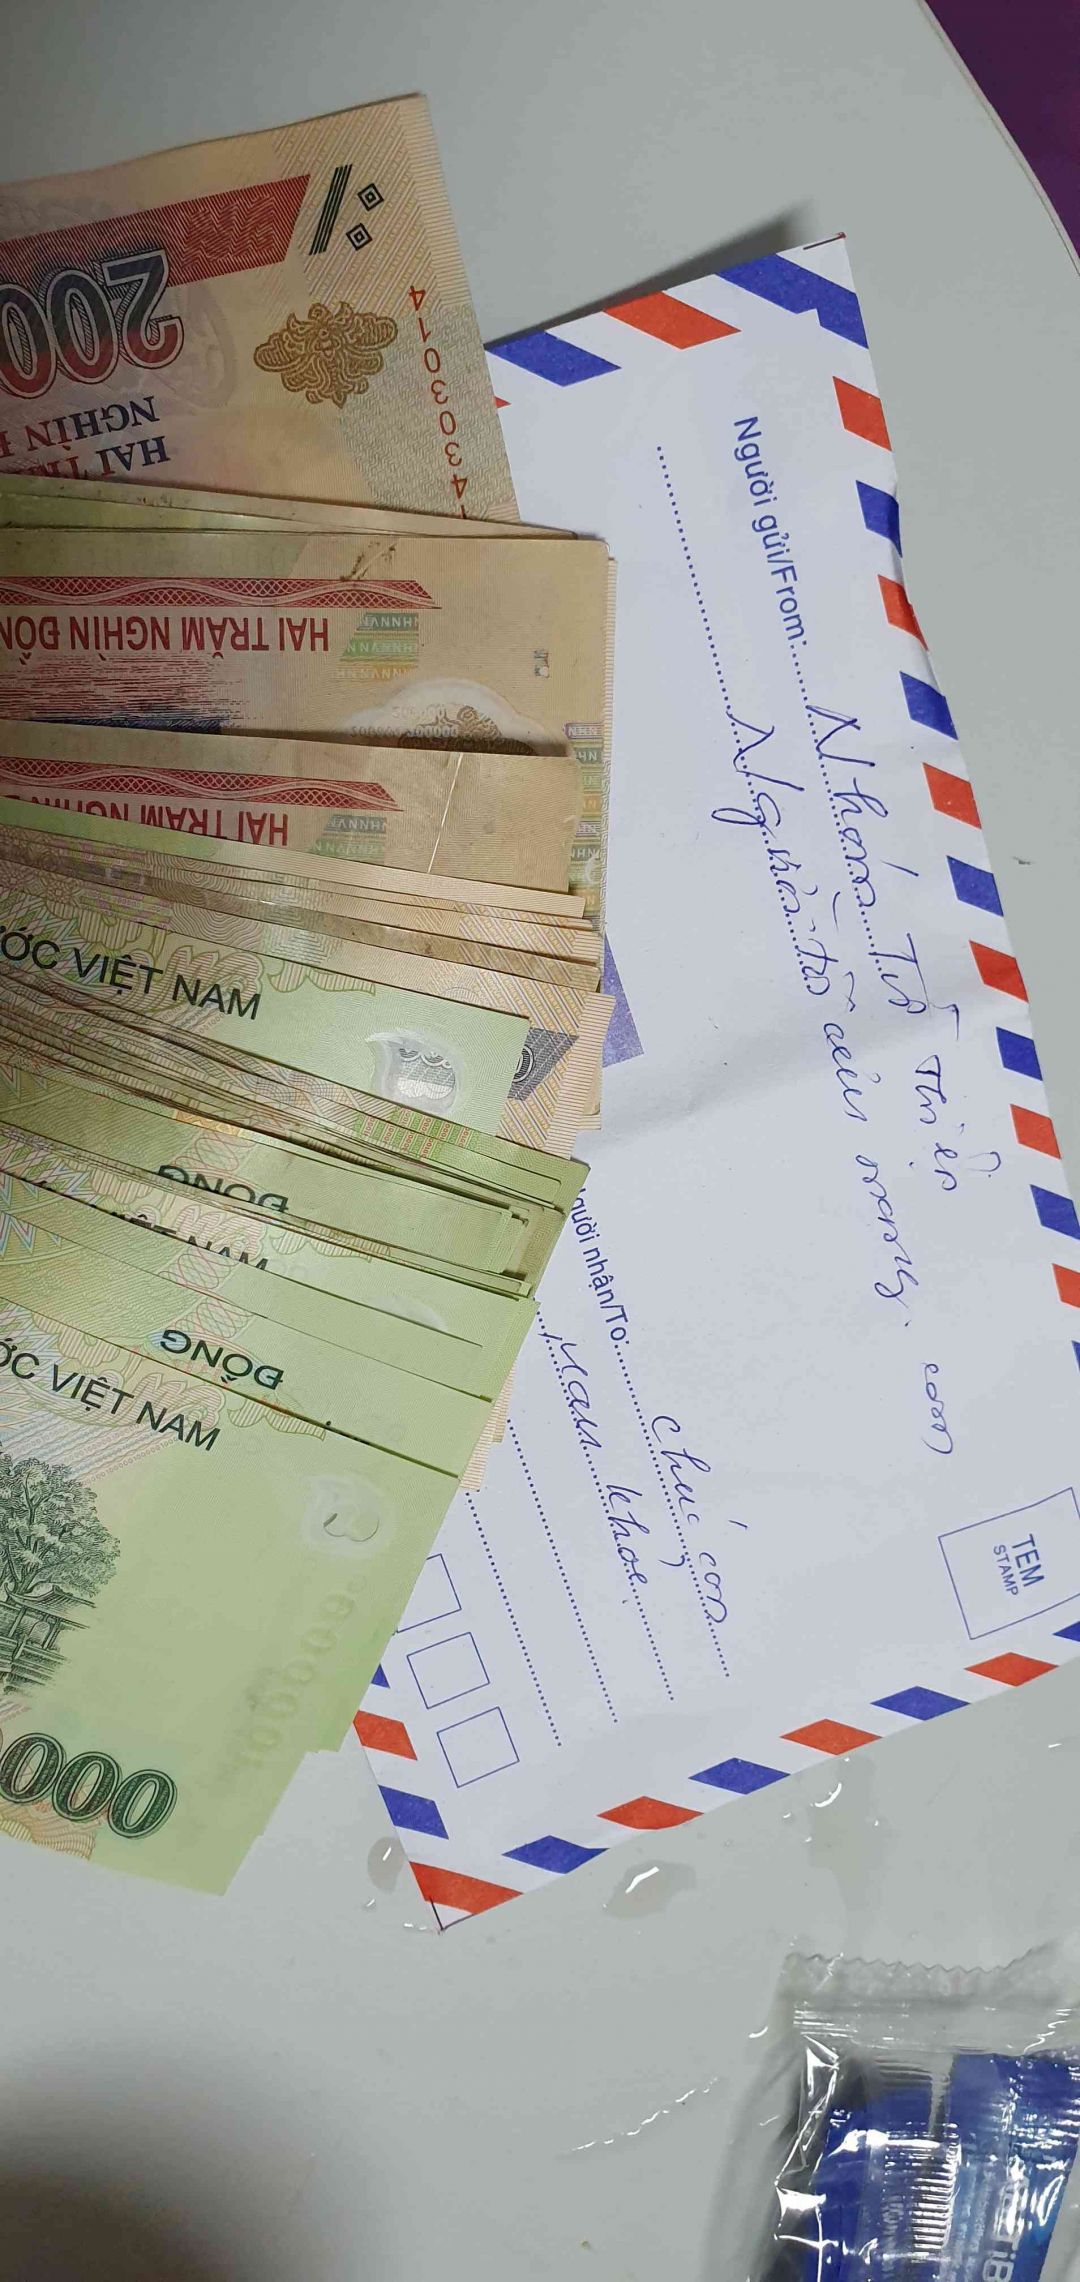 200
HAI TRĂM
NGHÌN
14330314
HAI TRĂM NGHÌN ĐỒN
200000 200000
HAI TRĂM NGHÌN
ƯỚC VIỆT NAM
ĐỒNG
VIỆT NAM
ĐỒNG
ỚC VIỆT NAM
100000
000
Người gửi/From: Nhóm Từ Thiện
Nguồn từ cứu mạng. com
gười nhận/To: chúc con
mau khỏe
TEM
STAMP